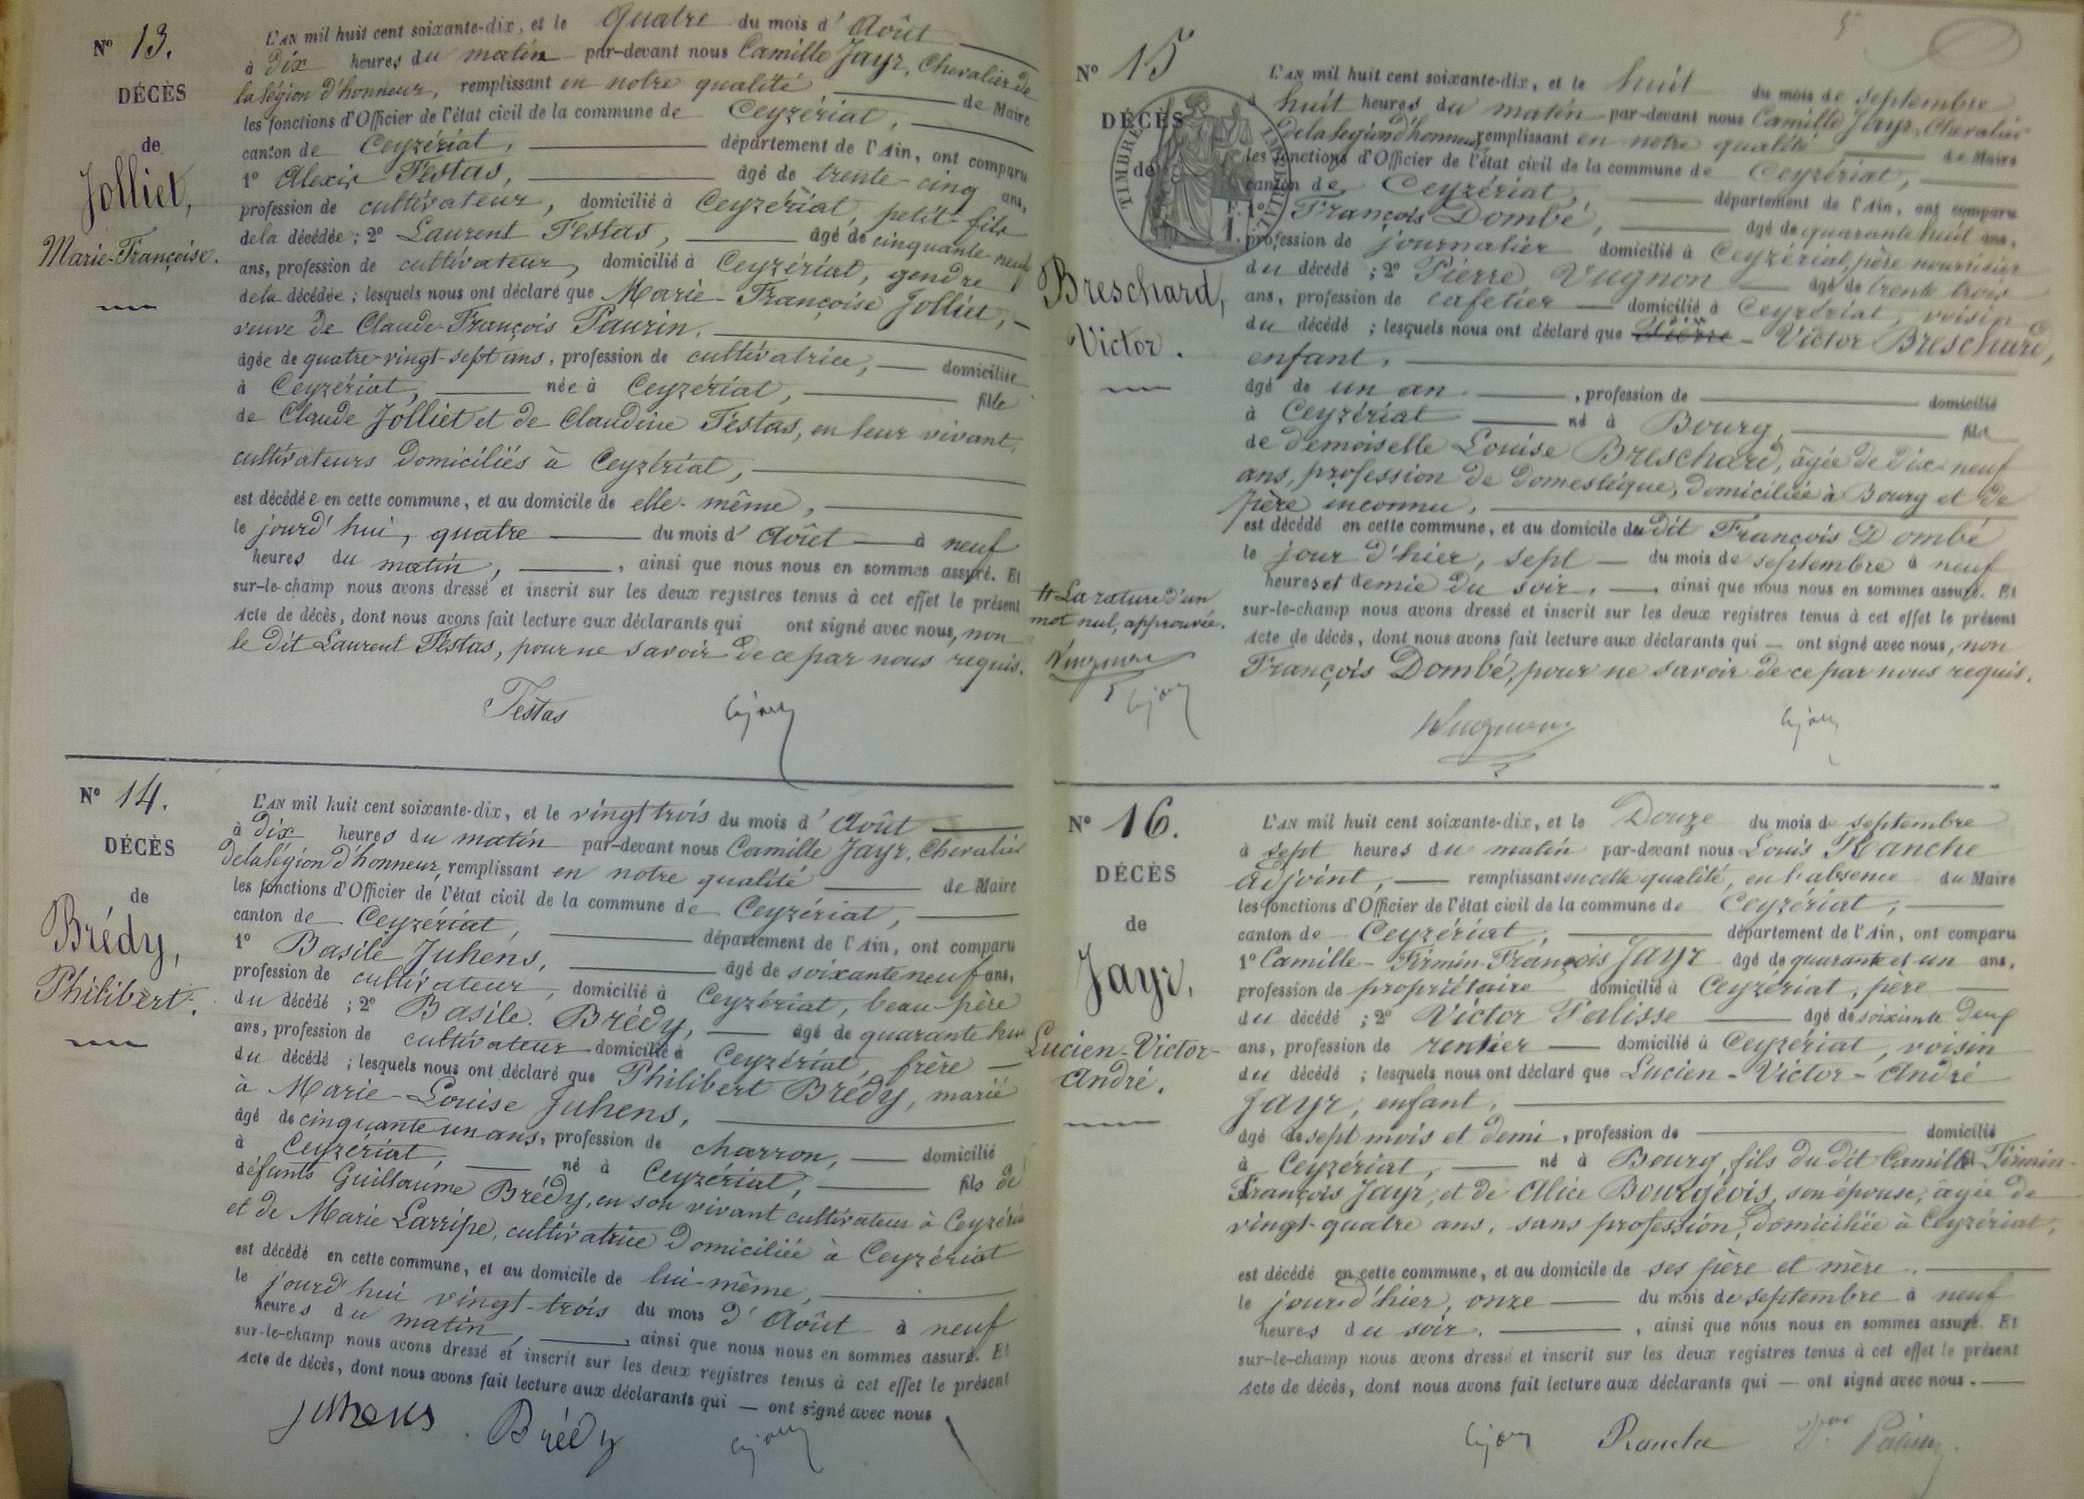 Nº 13.
DÉCÈS
de
Jolliet,
Marie-Françoise.
L'AN mil huit cent soixante-dix, et le quatre du mois d'Août
à dix heures du matin par-devant nous Camille Jayr, Chevalier de
la légion d'honneur, remplissant en notre qualité de Maire
les fonctions d'Officier de l'état civil de la commune de Ceyzériat,
canton de Ceyzériat, département de l'Ain, ont comparu
1º Alexis Festas, âgé de trente-cinq ans,
profession de cultivateur, domicilié à Ceyzériat, petit-fils
de la décédée ; 2º Laurent Festas, âgé de cinquante-neuf
ans, profession de cultivateur, domicilié à Ceyzériat, gendre
de la décédée ; lesquels nous ont déclaré que Marie-Françoise Jolliet,
veuve de Claude-François Paurin,
âgée de quatre-vingt-sept ans, profession de cultivatrice, domiciliée
à Ceyzériat, née à Ceyzériat, fille
de Claude Jolliet et de Claudine Festas, en leur vivant
cultivateurs domiciliés à Ceyzériat,
est décédée en cette commune, et au domicile de elle-même,
le jourd'hui, quatre du mois d'Août à neuf
heures du matin, , ainsi que nous nous en sommes assuré. Et
sur-le-champ nous avons dressé et inscrit sur les deux registres tenus à cet effet le présent
Acte de décès, dont nous avons fait lecture aux déclarants qui ont signé avec nous, non
le dit Laurent Festas, pour ne savoir de ce par nous requis.
Festas
Nº 14.
DÉCÈS
de
Brédy,
Philibert.
L'AN mil huit cent soixante-dix, et le vingt trois du mois d'Août
à dix heures du matin par-devant nous Camille Jayr, Chevalier
de la légion d'honneur, remplissant en notre qualité de Maire
les fonctions d'Officier de l'état civil de la commune de Ceyzériat,
canton de Ceyzériat, département de l'Ain, ont comparu
1º Basile Juhens, âgé de soixante neuf ans,
profession de cultivateur, domicilié à Ceyzériat, beau-père
du décédé ; 2º Basile Brédy, âgé de quarante hui
ans, profession de cultivateur domicilié à Ceyzériat, frère
du décédé ; lesquels nous ont déclaré que Philibert Brédy, marié
à Marie-Louise Juhens,
âgé de cinquante un ans, profession de charron, domicilié
à Ceyzériat, né à Ceyzériat, fils de
défunts Guillaume Brédy, en son vivant cultivateur à Ceyzéria
et de Marie Larripe, cultivatrice domiciliée à Ceyzériat
est décédé en cette commune, et au domicile de lui-même,
le jourd'hui vingt-trois du mois d'Août à neuf
heures du matin, , ainsi que nous nous en sommes assuré. Et
sur-le-champ nous avons dressé et inscrit sur les deux registres tenus à cet effet le présent
Acte de décès, dont nous avons fait lecture aux déclarants qui — ont signé avec nous
Juhens Brédy
Nº 15
DÉCÈS
de
TIMBRE IMPÉRIAL
Breschard,
Victor.
L'AN mil huit cent soixante-dix, et le huit du mois de septembre
à huit heures du matin par-devant nous Camille Jayr, Chevalier
de la légion d'honneur, remplissant en notre qualité de Maire
les fonctions d'Officier de l'état civil de la commune de Ceyzériat,
canton de Ceyzériat, département de l'Ain, ont comparu
1º François Dombé, âgé de quarante huit ans,
profession de journalier domicilié à Ceyzériat, père nourricier
du décédé ; 2º Pierre Vugnon âgé de trente trois
ans, profession de cafetier domicilié à Ceyzériat, voisin
du décédé ; lesquels nous ont déclaré que Victor Breschard,
enfant,
âgé de un an , profession de domicilié
à Ceyzériat né à Bourg, fils
de demoiselle Louise Breschard, âgée de dix-neuf
ans, profession de domestique, domiciliée à Bourg et de
père inconnu,
est décédé en cette commune, et au domicile du dit François Dombé
le jour d'hier, sept du mois de septembre à neuf
heures et demie du soir. , ainsi que nous nous en sommes assuré. Et
sur-le-champ nous avons dressé et inscrit sur les deux registres tenus à cet effet le présent
Acte de décès, dont nous avons fait lecture aux déclarants qui — ont signé avec nous, non
François Dombé, pour ne savoir de ce par nous requis.
La rature d'un
mot nul, approuvée.
Nº 16.
DÉCÈS
de
Jayr,
Lucien-Victor-
André.
L'AN mil huit cent soixante-dix, et le Douze du mois de septembre
à sept heures du matin par-devant nous Louis Ranche
adjoint, remplissant en cette qualité, en l'absence du Maire
les fonctions d'Officier de l'état civil de la commune de Ceyzériat,
canton de Ceyzériat, département de l'Ain, ont comparu
1º Camille-Firmin-François Jayr âgé de quarante et un ans,
profession de propriétaire domicilié à Ceyzériat, père
du décédé ; 2º Victor Palisse âgé de soixante deux
ans, profession de rentier domicilié à Ceyzériat, voisin
du décédé ; lesquels nous ont déclaré que Lucien-Victor-André
Jayr, enfant,
âgé de sept mois et demi, profession de domicilié
à Ceyzériat, né à Bourg, fils du dit Camille Firmin-
François Jayr, et de Alice Bourgeois, son épouse, âgée de
vingt-quatre ans, sans profession, domiciliée à Ceyzériat,
est décédé en cette commune, et au domicile de ses père et mère.
le jour d'hier, onze du mois de septembre à neuf
heures du soir. , ainsi que nous nous en sommes assuré. Et
sur-le-champ nous avons dressé et inscrit sur les deux registres tenus à cet effet le présent
Acte de décès, dont nous avons fait lecture aux déclarants qui — ont signé avec nous.
Ranche